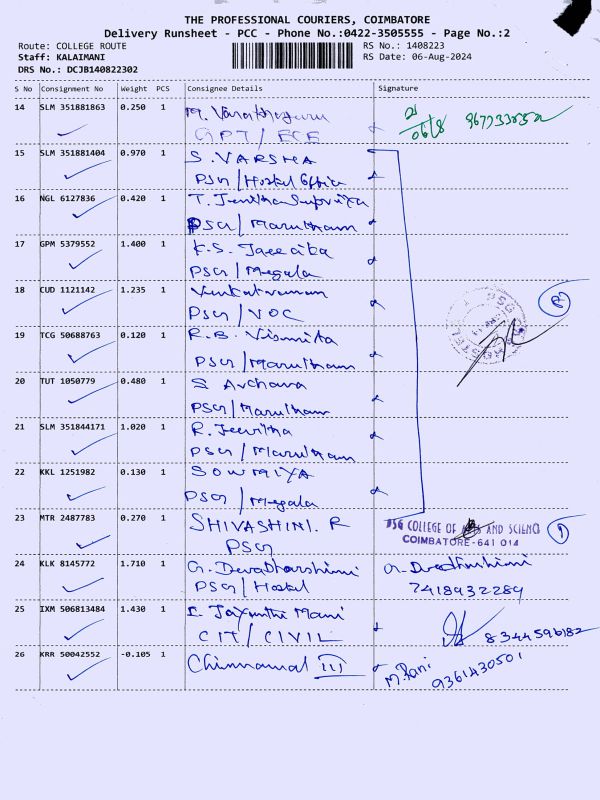 THE PROFESSIONAL COURIERS, COIMBATORE
Delivery Runsheet - PCC - Phone No.:0422-3505555 - Page No.:2
Route: COLLEGE ROUTE
RS No.: 1408223
Staff: KALAIMANI
RS Date: 06-Aug-2024
DRS No.: DCJB140822302
S No Consignment No Weight PCS Consignee Details Signature
14 SLM 351881863 0.250 1 M.
GPT/ECE
15 SLM 351881404 0.970 1 S. VARSHA
PSG/Hostel Office
16 NGL 6127836 0.420 1 T.
PSG/Marutham
17 GPM 5379552 1.400 1 K.S.
PSG/Megala
18 CUD 1121142 1.235 1 Venkatraman
PSG/VOC
19 TCG 50688763 0.120 1 R.B. Vismita
PSG/Marutham
20 TUT 1050779 0.480 1 S Archana
PSG/Marutham
21 SLM 351844171 1.020 1 R. Jeevitha
PSG/Marutham
22 KKL 1251982 0.130 1 SOWMIYA
PSG/Megala
23 MTR 2487783 0.270 1 SHIVASHINI. R
PSG
PSG COLLEGE OF ARTS AND SCIENCE
COIMBATORE-641 014
24 KLK 8145772 1.710 1 G. Devadharshini
PSG/Hostel
7418932289
25 IXM 506813484 1.430 1 Jayanthi Mani
CIT/CIVIL
8344596182
26 KRR 50042552 -0.105 1 Chinnamal III
M. Rani
9361430501